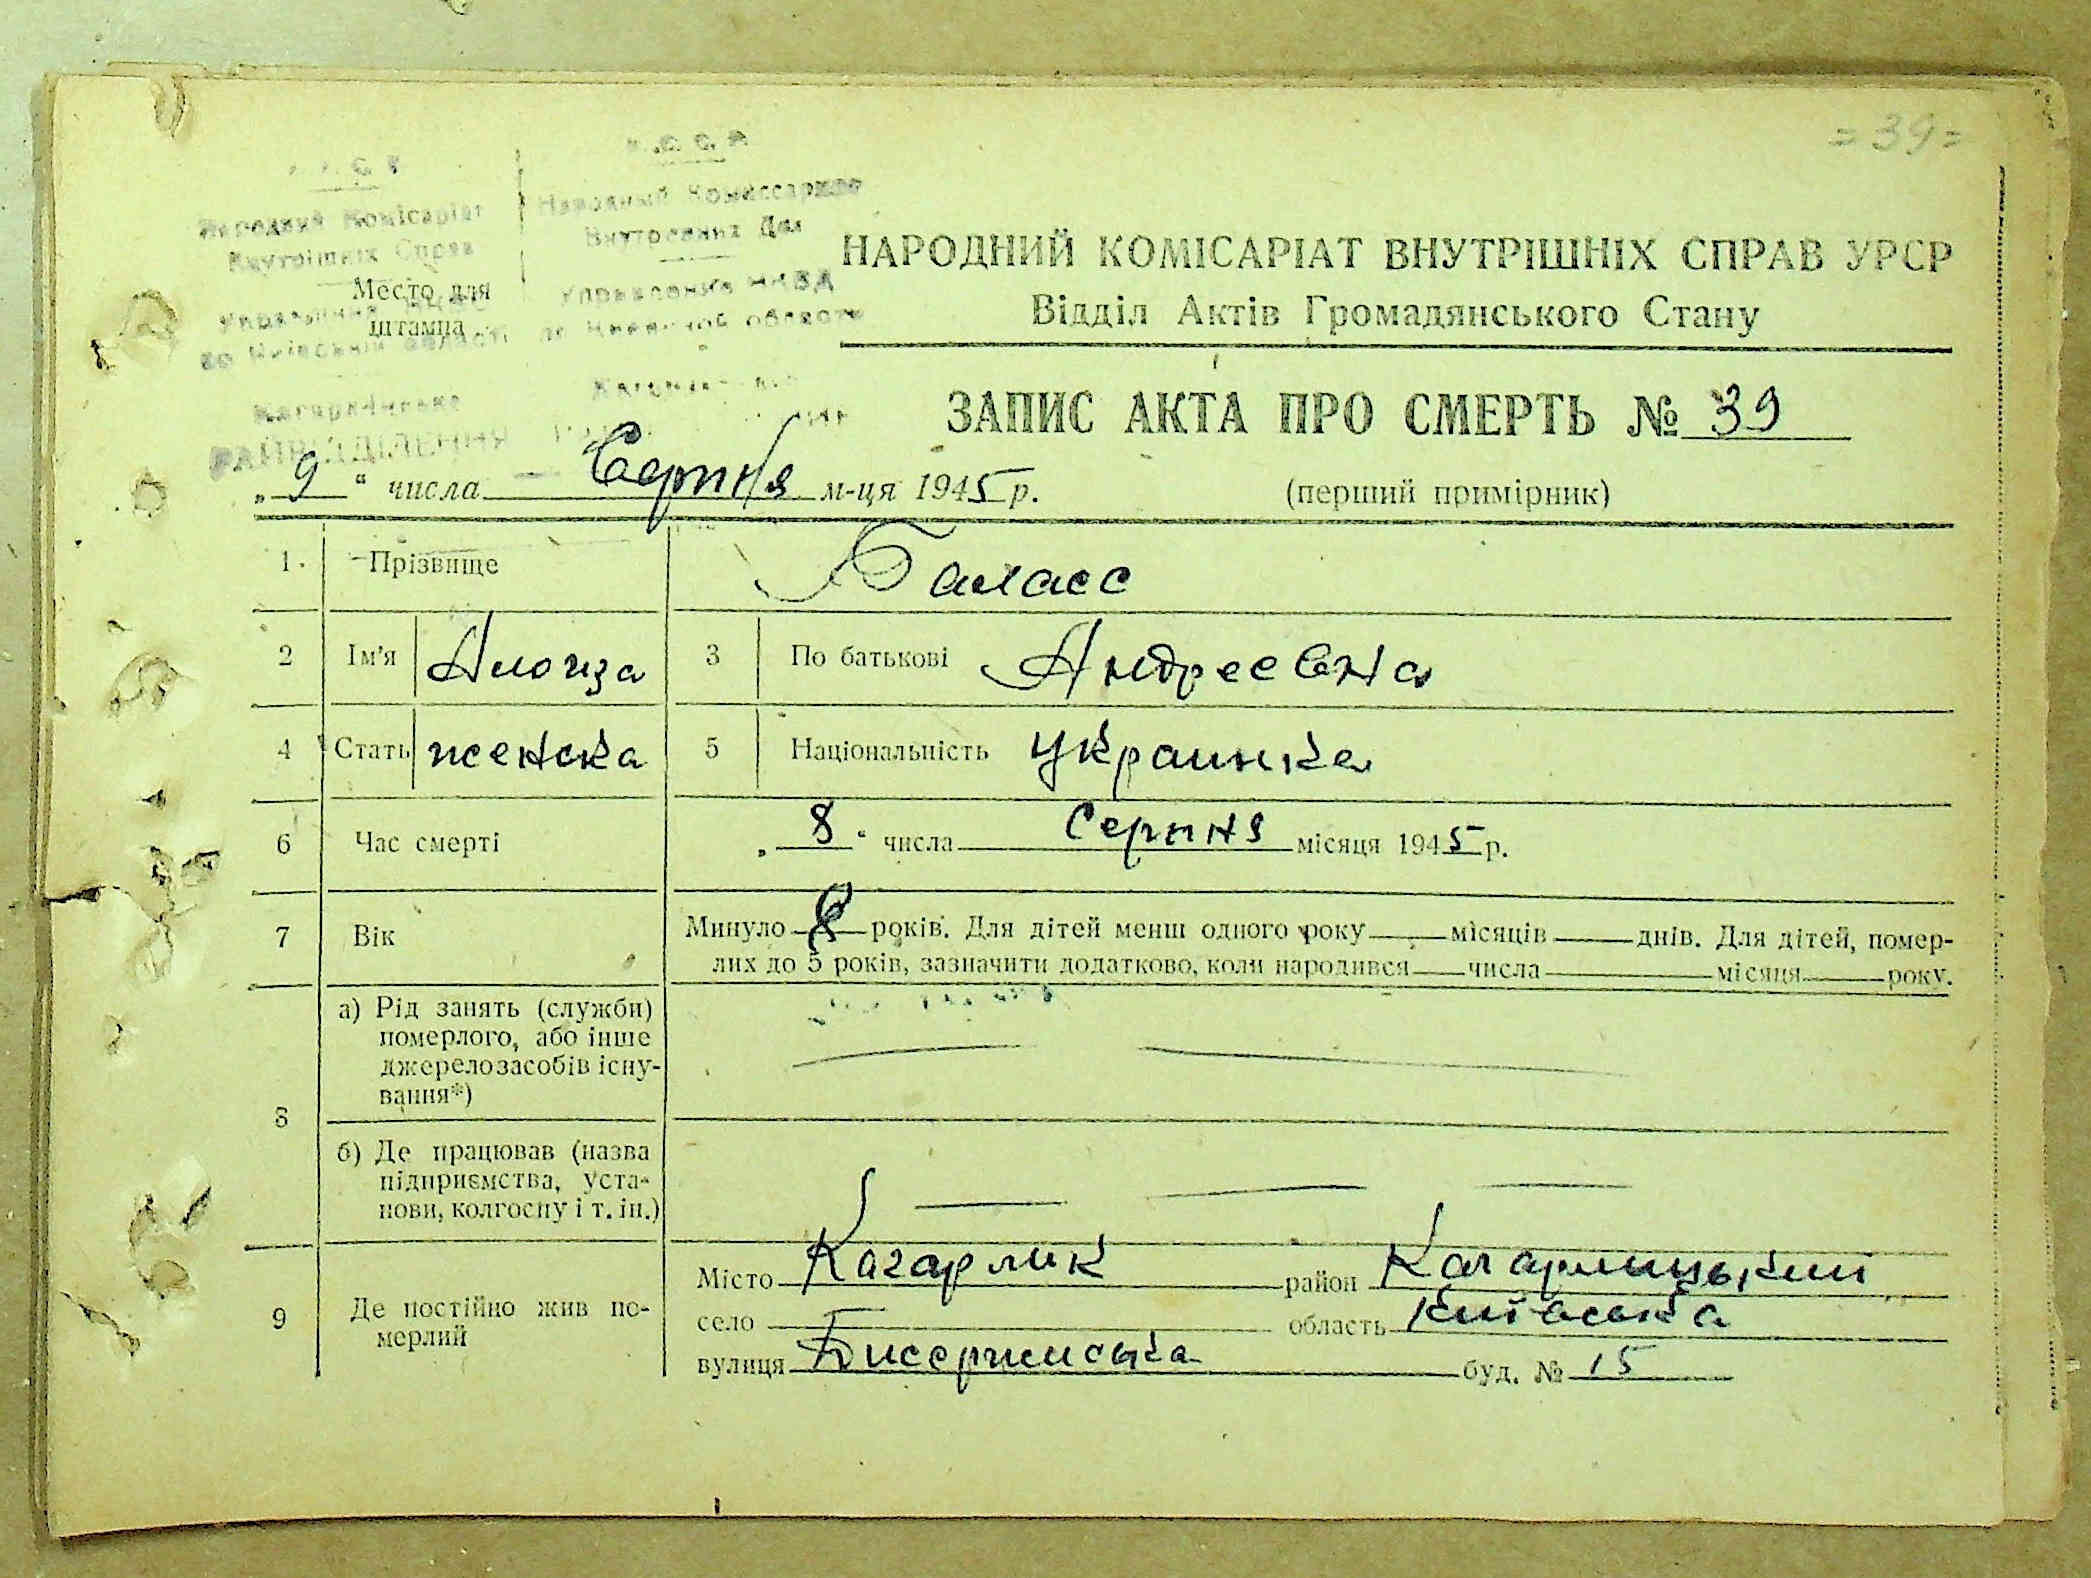 = 39 =
Народний Комісаріат
Внутрішніх Справ
по Київській області
Народный Комиссариат
Внутренних Дел
Управление НКВД
по Киевской области
РАЙВІДДІЛЕННЯ
Место для
штампа
НАРОДНИЙ КОМІСАРІАТ ВНУТРІШНІХ СПРАВ УРСР
Відділ Актів Громадянського Стану
ЗАПИС АКТА ПРО СМЕРТЬ № 39
„ 9 “ числа Серпня м-ця 1945 р. (перший примірник)
1. Прізвище Баласс
2 Ім'я 3 По батькові Андреевна
4 Стать женска 5 Національність украинка
6 Час смерті „ 8 “ числа Серпня місяця 1945 р.
7 Вік Минуло років. Для дітей менш одного року місяців днів. Для дітей, помер-
лих до 5 років, зазначити додатково, коли народився числа місяця року.
8 а) Рід занять (служби)
померлого, або інше
джерело засобів існу-
вання*)
б) Де працював (назва
підприємства, уста-
нови, колгоспу і т. ін.)
9 Де постійно жив по-
мерлий
Місто Кагарлик район Кагарлицький
село — область Київська
вулиця буд. № 15